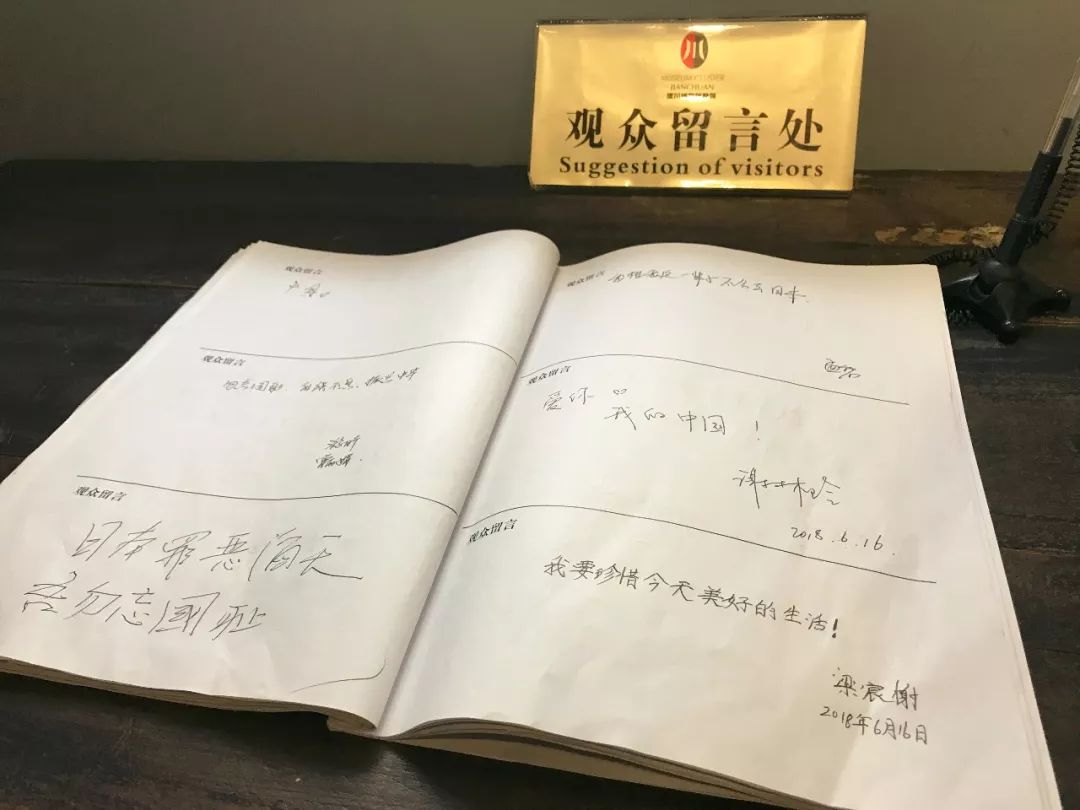 MUSEUM CLUSTER
JIANCHUAN
建川博物馆聚落
观众留言处
Suggestion of visitors
观众留言
观众留言
勿忘国耻 自强不息 振兴中华
观众留言
日本罪恶滔天
吾勿忘國耻
观众留言
一辈子不会去日本.
观众留言
爱你
我的中国！
2018.6.16.
观众留言
我要珍惜今天美好的生活！
梁宸榭
2018年6月16日